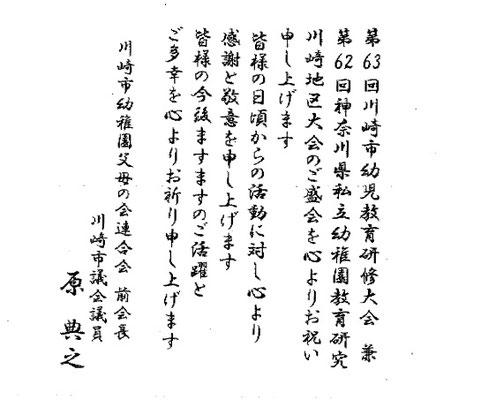 第63回川崎市幼児教育研修大会　兼
第62回神奈川県私立幼稚園教育研究
川崎地区大会のご盛会を心よりお祝い
申し上げます
皆様の日頃からの活動に対し心より
感謝と敬意を申し上げます
皆様の今後ますますのご活躍と
ご多幸を心よりお祈り申し上げます
川崎市幼稚園父母の会連合会　前会長
川崎市議会議員
原　典之